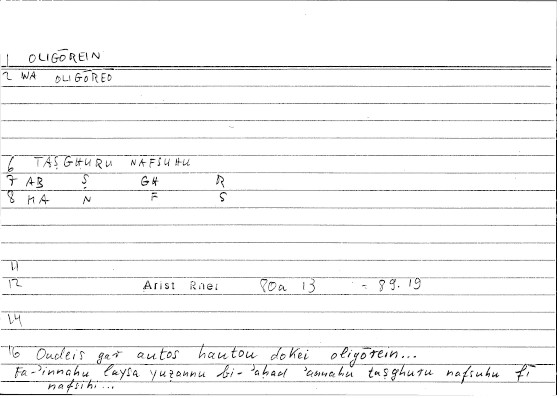 1 OLIGŌREIN
2 WA OLIGŌREO
6 TAṢGHURU NAFSUHU
7 AB Ṣ GH R
8 MA N F S
11
12 Arist Rhet 80a 13 - 89.19
14
16 Oudeis gar autos hautou dokei oligōrein...
Fa-'innahu laysa yuẓannu bi-'aḥad 'annahu taṣghuru nafsuhu fī
nafsihi...